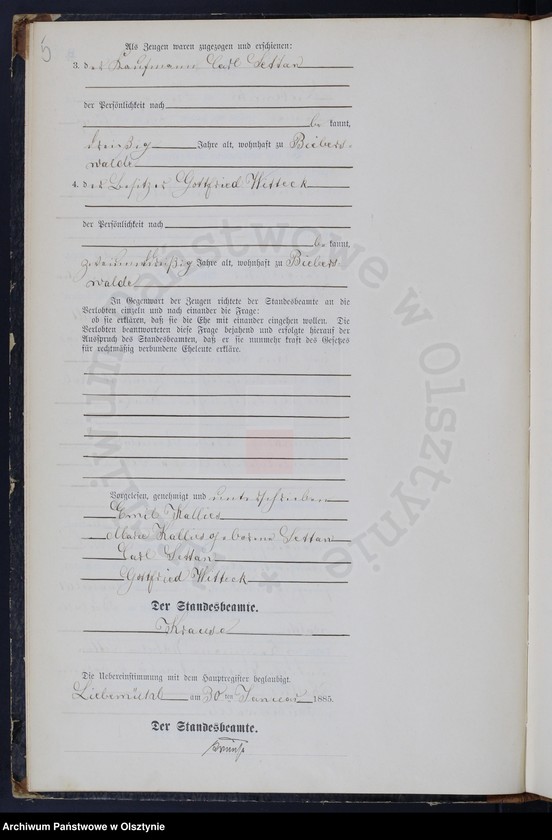 5
Als Zeugen waren zugezogen und erschienen:
3. der Kaufmann Carl Settau
der Persönlichkeit nach
be kannt,
dreißig Jahre alt, wohnhaft zu Biebers-
walde
4. der Besitzer Gottfried Witteck
der Persönlichkeit nach
be kannt,
zweiunddreißig Jahre alt, wohnhaft zu Biebers-
walde
In Gegenwart der Zeugen richtete der Standesbeamte an die
Verlobten einzeln und nach einander die Frage:
ob sie erklären, daß sie die Ehe mit einander eingehen wollen. Die
Verlobten beantworteten diese Frage bejahend und erfolgte hierauf der
Ausspruch des Standesbeamten, daß er sie nunmehr kraft des Gesetzes
für rechtmäßig verbundene Eheleute erkläre.
Vorgelesen, genehmigt und unterschrieben
Emil Kallies
Kallies geborene Settau
Carl Settau
Gottfried Witteck
Der Standesbeamte.
Krause
Die Uebereinstimmung mit dem Hauptregister beglaubigt.
Liebemühl am 30 ten Januar 1885.
Der Standesbeamte.
Krause
Archiwum Państwowe w Olsztynie
Archiwum Państwowe w Olsztynie